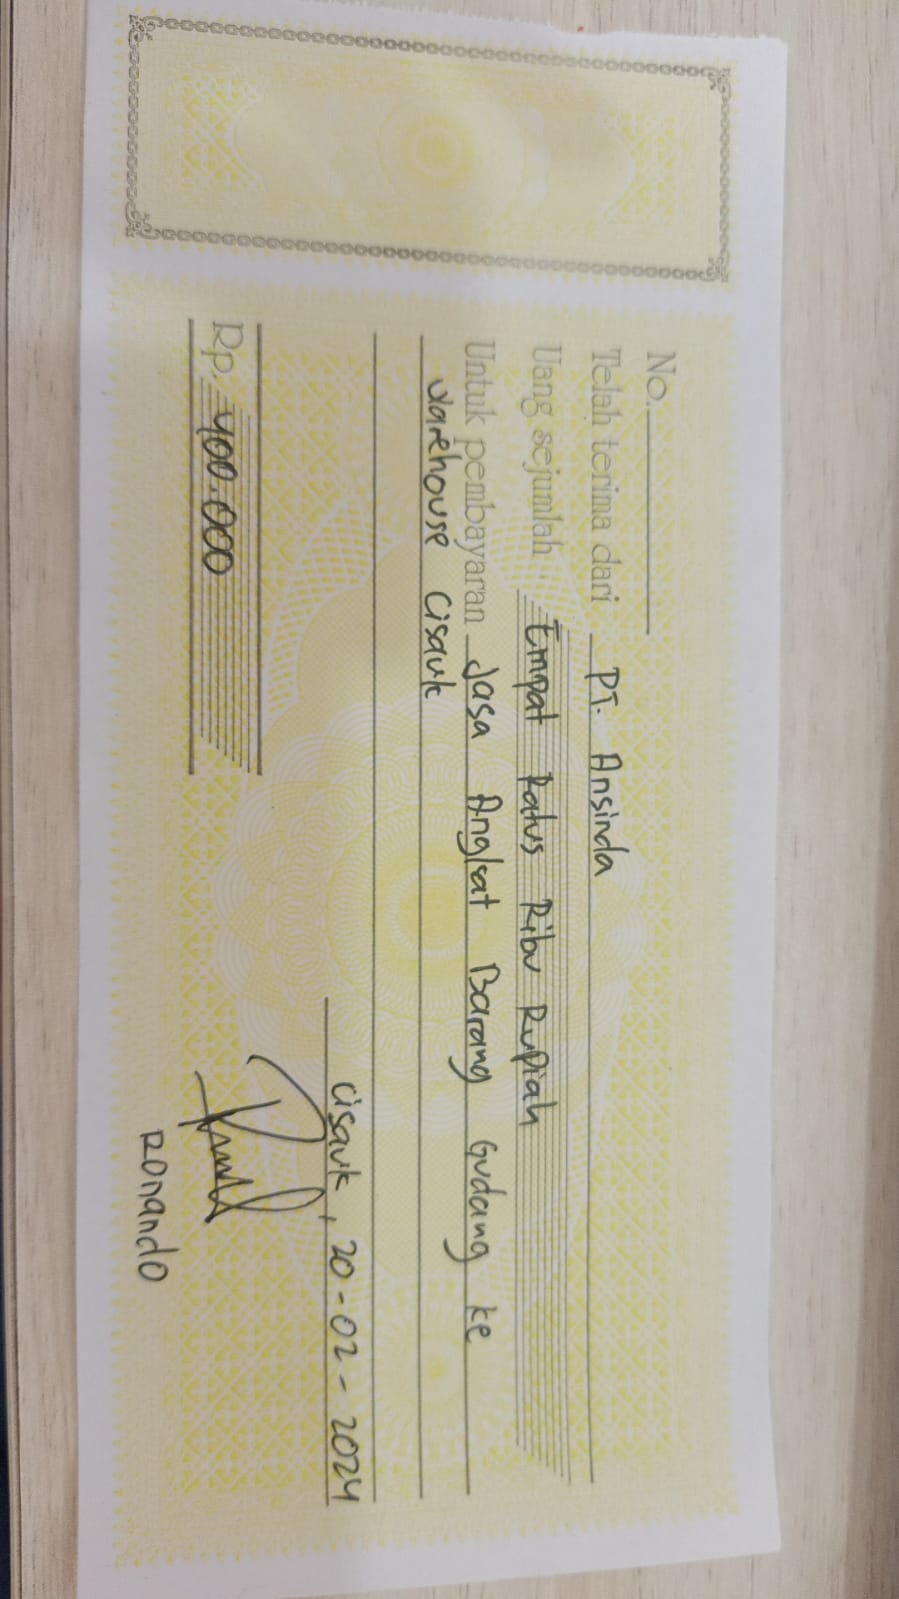 No.
Telah terima dari PT. Ansinda
Uang sejumlah Empat Ratus Ribu Rupiah
Untuk pembayaran Jasa Angkat Barang Gudang ke
Warehouse Cisauk
Cisauk, 20-02-2024
Rp. 400.000
Ronando